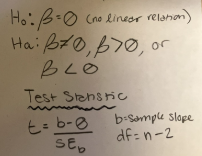 Ho: β=0 (no linear relation)
Ha: β≠0, β>0, or
β<0
Test Statistic
t = b-0 / SE_b
b=sample slope
df=n-2